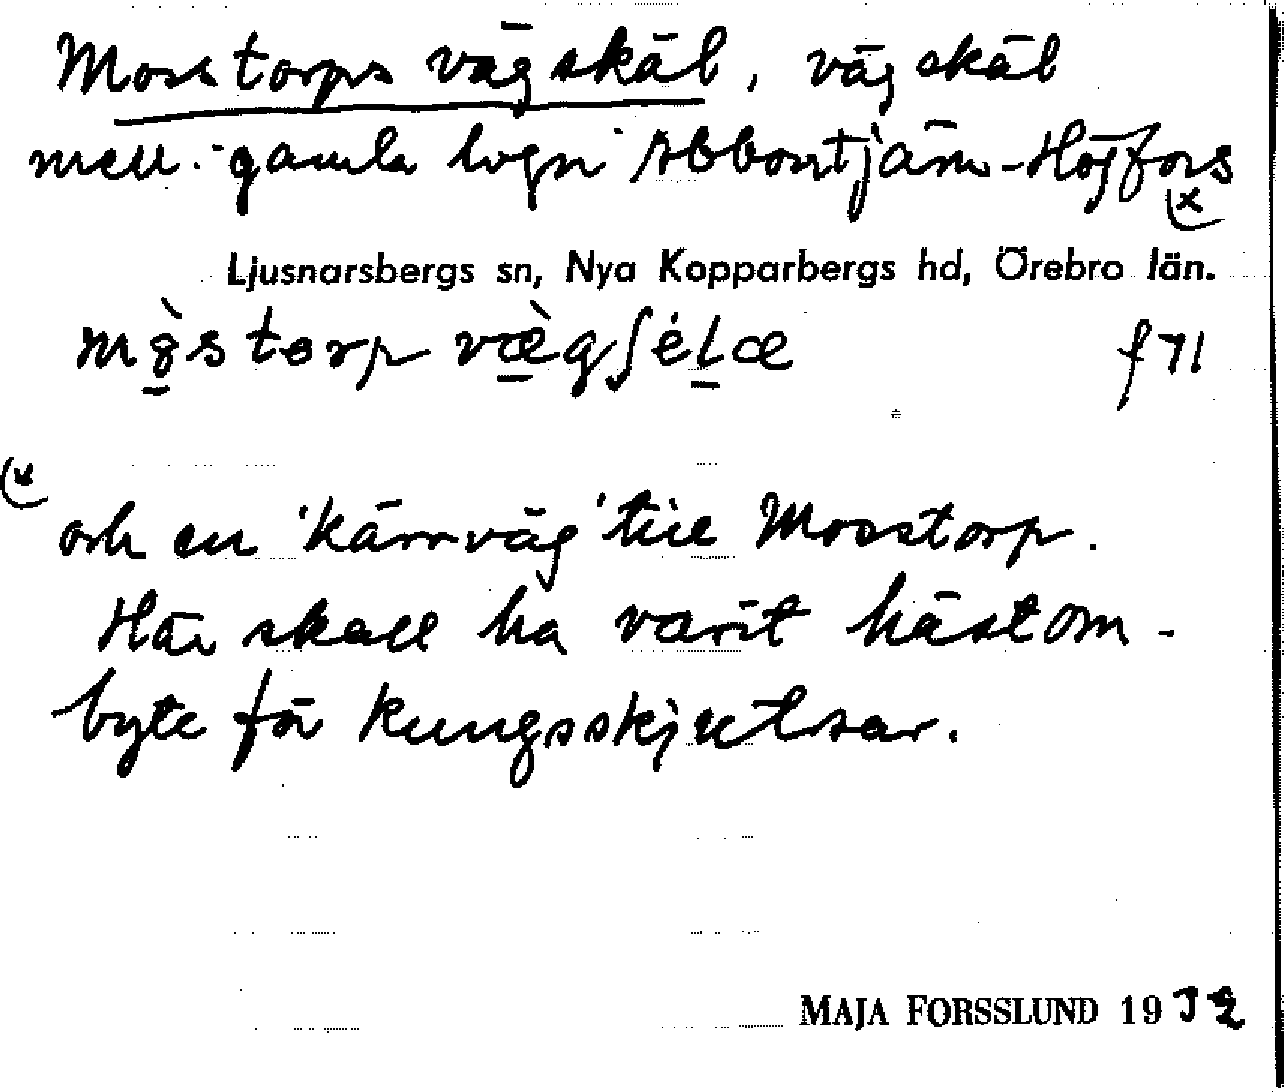 Mosstorps vägskäl, vägskäl
mell. "gamla lvgn" Abbortjärn-Högfors
(x
Ljusnarsbergs sn, Nya Kopparbergs hd, Örebro län.
f 71
(x
och en 'kärrväg' till Mosstorp.
Här skall ha varit hästom-
byte för kungsskjutsar.
MAJA FORSSLUND 19